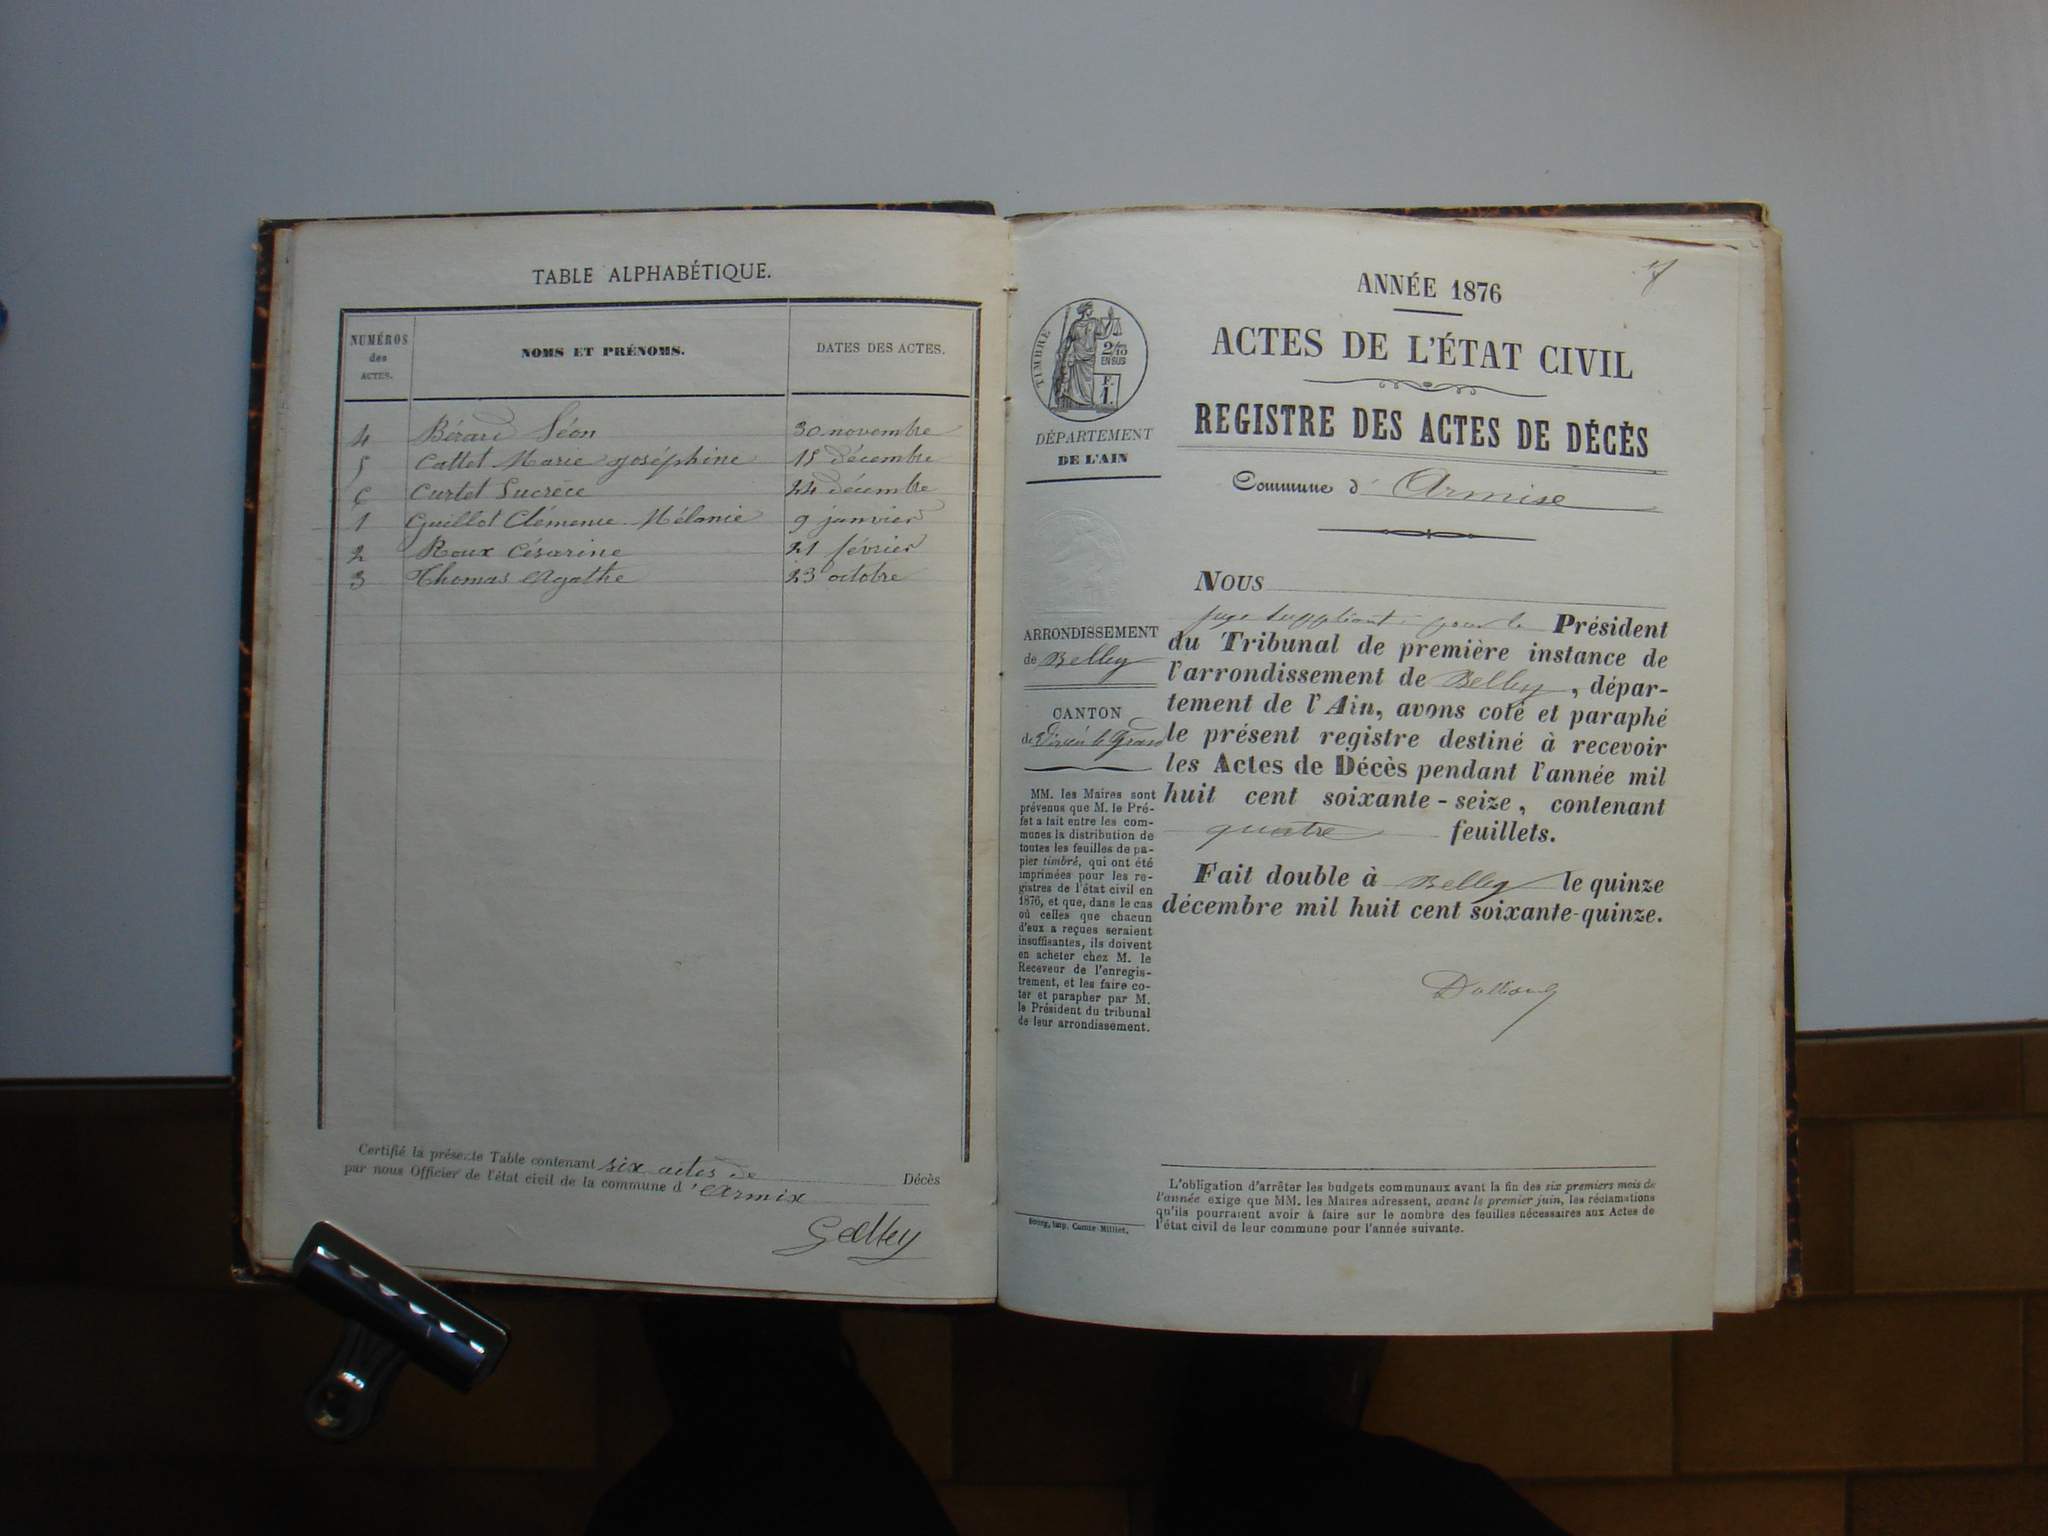 TABLE ALPHABÉTIQUE.
NUMÉROS des ACTES.
NOMS ET PRÉNOMS.
DATES DES ACTES.
4 Bérard Léon 30 novembre
5 Cattet Marie Joséphine 15 décembre
6 Curtet Lucrèce 24 décembre
1 Guillot Clémence Mélanie 9 janvier
2 Roux Césarine 21 février
3 Thomas Agathe 23 octobre
Certifié la présente Table contenant six actes de Décès
par nous Officier de l'état civil de la commune d'Armix
ANNÉE 1876
ACTES DE L'ÉTAT CIVIL
REGISTRE DES ACTES DE DÉCÈS
Commune d' Armise
TIMBRE
2/10
EN SUS
F.
1.
DÉPARTEMENT
DE L'AIN
ARRONDISSEMENT
de Belley
CANTON
de Virieu le Grand
MM. les Maires sont
prévenus que M. le Pré-
fet a fait entre les com-
munes la distribution de
toutes les feuilles de pa-
pier timbré, qui ont été
imprimées pour les re-
gistres de l'état civil en
1876, et que, dans le cas
où celles que chacun
d'eux a reçues seraient
insuffisantes, ils doivent
en acheter chez M. le
Receveur de l'enregis-
trement, et les faire co-
ter et parapher par M.
le Président du tribunal
de leur arrondissement.
Bourg, imp. Comte-Milliet.
NOUS
juge suppléant pour le Président
du Tribunal de première instance de
l'arrondissement de Belley, dépar-
tement de l'Ain, avons coté et paraphé
le présent registre destiné à recevoir
les Actes de Décès pendant l'année mil
huit cent soixante-seize, contenant
quatre feuillets.
Fait double à Belley le quinze
décembre mil huit cent soixante-quinze.
L'obligation d'arrêter les budgets communaux avant la fin des six premiers mois de
l'année exige que MM. les Maires adressent, avant le premier juin, les réclamations
qu'ils pourraient avoir à faire sur le nombre des feuilles nécessaires aux Actes de
l'état civil de leur commune pour l'année suivante.